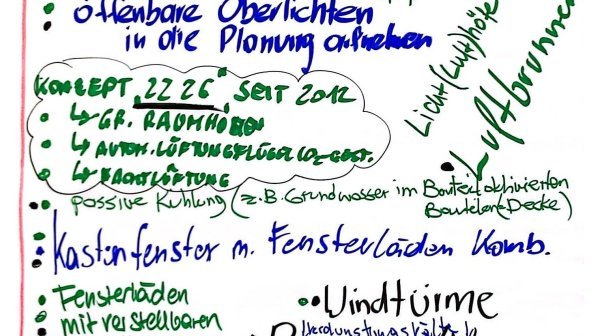 öffenbare Oberlichten
in die Planung aufnehmen
KONZEPT "22 26" SEIT 2012
↳ GR. RAUMHÖHEN
↳ AUTOM. LÜFTUNGSFLÜGEL CO2-GEST.
↳ NACHTLÜFTUNG
Licht(Luft)höfe
Luftbrunnen
passive Kühlung (z.B. Grundwasser im Bauteil aktivierten
Bauteilen (Decke)
Kastenfenster m. Fensterläden Komb.
Fensterläden
mit verstellbaren
Windtürme